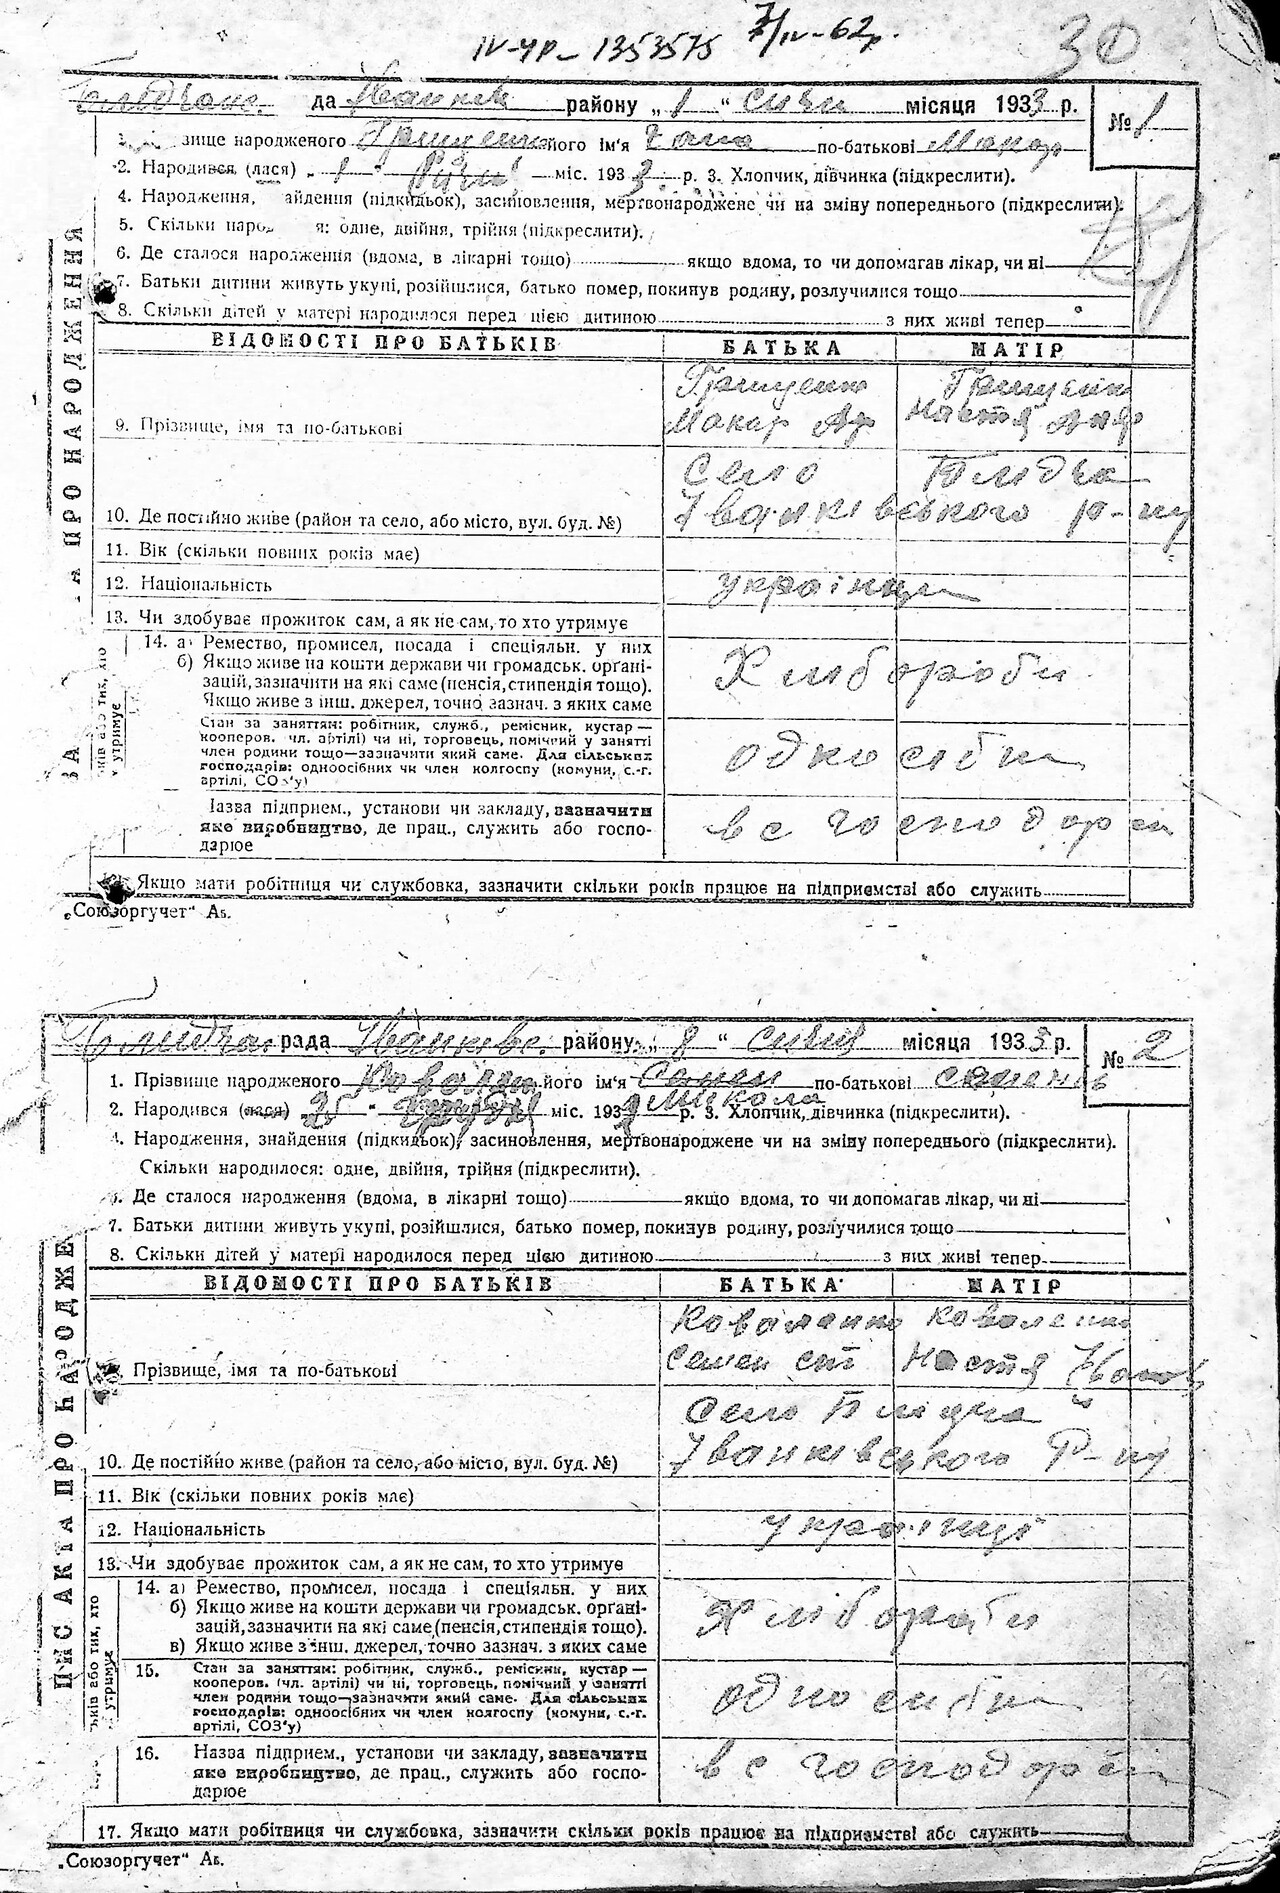 IV-ЧР- 1353575 7/IV-62р.
30
да Іванків району „1“ січн місяця 1933 р. № 1
звище народженого Грищенко його ім'я Гапа по-батькові Макар
2. Народився (лася) „1“ Січня міс. 1933 р. 3. Хлопчик, дівчинка (підкреслити).
4. Народження, айдення (підкидьок), засиновлення, мертвонароджене чи на зміну попереднього (підкреслити).
5. Скільки наро я: одне, двійня, трійня (підкреслити).
6. Де сталося народження (вдома, в лікарні тощо) якщо вдома, то чи допомагав лікар, чи ні
7. Батьки дитини живуть укупі, розійшлися, батько помер, покинув родину, розлучилися тощо
8. Скільки дітей у матері народилося перед цією дитиною з них живі тепер
ВІДОМОСТІ ПРО БАТЬКІВ БАТЬКА МАТІР
Грищенко Грищенко
9. Прізвище, імя та по-батькові Макар Ар Настя
Село Блидча
10. Де постійно живе (район та село, або місто, вул. буд. №) Іванківського р-ну
11. Вік (скільки повних років має)
12. Національність українци
13. Чи здобуває прожиток сам, а як не сам, то хто утримує
14. а) Ремество, промисел, посада і спеціяльн. у них
б) Якщо живе на кошти держави чи громадськ. орґані-
зацій, зазначити на які саме (пенсія, стипендія тощо). Хлібороби
Якщо живе з інш. джерел, точно зазнач. з яких саме
Стан за заняттям: робітник, служб., ремісник, кустар —
кооперов. чл. артілі) чи ні, торговець, помічний у занятті
член родини тощо—зазначити який саме. Для сільських односібн
господарів: одноосібних чи член колгоспу (комуни, с.-г.
артілі, СОЗ'у)
Назва підприєм., установи чи закладу, зазначити
яке виробництво, де прац., служить або госпо- в с господарсті
дарює
Якщо мати робітниця чи службовка, зазначити скільки років працює на підприємстві або служить
„Союзоргучет“ А₅.
А ПРО НАРОДЖЕННЯ
рада Іванківс. району „8“ січня місяця 1933 р. № 2
1. Прізвище народженого Ковален його ім'я Семен по-батькові семенов
Микола
2. Народився (лася) 25 Грудня міс. 1932 р. 3. Хлопчик, дівчинка (підкреслити).
4. Народження, знайдення (підкидьок), засиновлення, мертвонароджене чи на зміну попереднього (підкреслити).
Скільки народилося: одне, двійня, трійня (підкреслити).
Де сталося народження (вдома, в лікарні тощо) якщо вдома, то чи допомагав лікар, чи ні
7. Батьки дитини живуть укупі, розійшлися, батько помер, покинув родину, розлучилися тощо
8. Скільки дітей у матері народилося перед цією дитиною з них живі тепер
ВІДОМОСТІ ПРО БАТЬКІВ БАТЬКА МАТІР
Коваленко Коваленко
Прізвище, імя та по-батькові Семен Настя Іванов
Село Блидча
10. Де постійно живе (район та село, або місто, вул. буд. №) Іванківського Р-ну
11. Вік (скільки повних років має)
12. Національність українці
13. Чи здобуває прожиток сам, а як не сам, то хто утримує
14. а) Ремество, промисел, посада і спеціяльн. у них
б) Якщо живе на кошти держави чи громадськ. орґані-
зацій, зазначити на які саме (пенсія, стипендія тощо). Хлібороби
в) Якщо живе з інш. джерел, точно зазнач. з яких саме
15. Стан за заняттям: робітник, служб., ремісник, кустар —
кооперов. (чл. артілі) чи ні, торговець, помічний у занятті
член родини тощо—зазначити який саме. Для сільських односібн
господарів: одноосібних чи член колгоспу (комуни, с.-г.
артілі, СОЗ'у)
16. Назва підприєм., установи чи закладу, зазначити
яке виробництво, де прац., служить або госпо- в с господарст
дарює
17. Якщо мати робітниця чи службовка, зазначити скільки років працює на підприємстві або служить
„Союзоргучет“ А₅.
ПИС АКТА ПРО НАРОДЖЕ